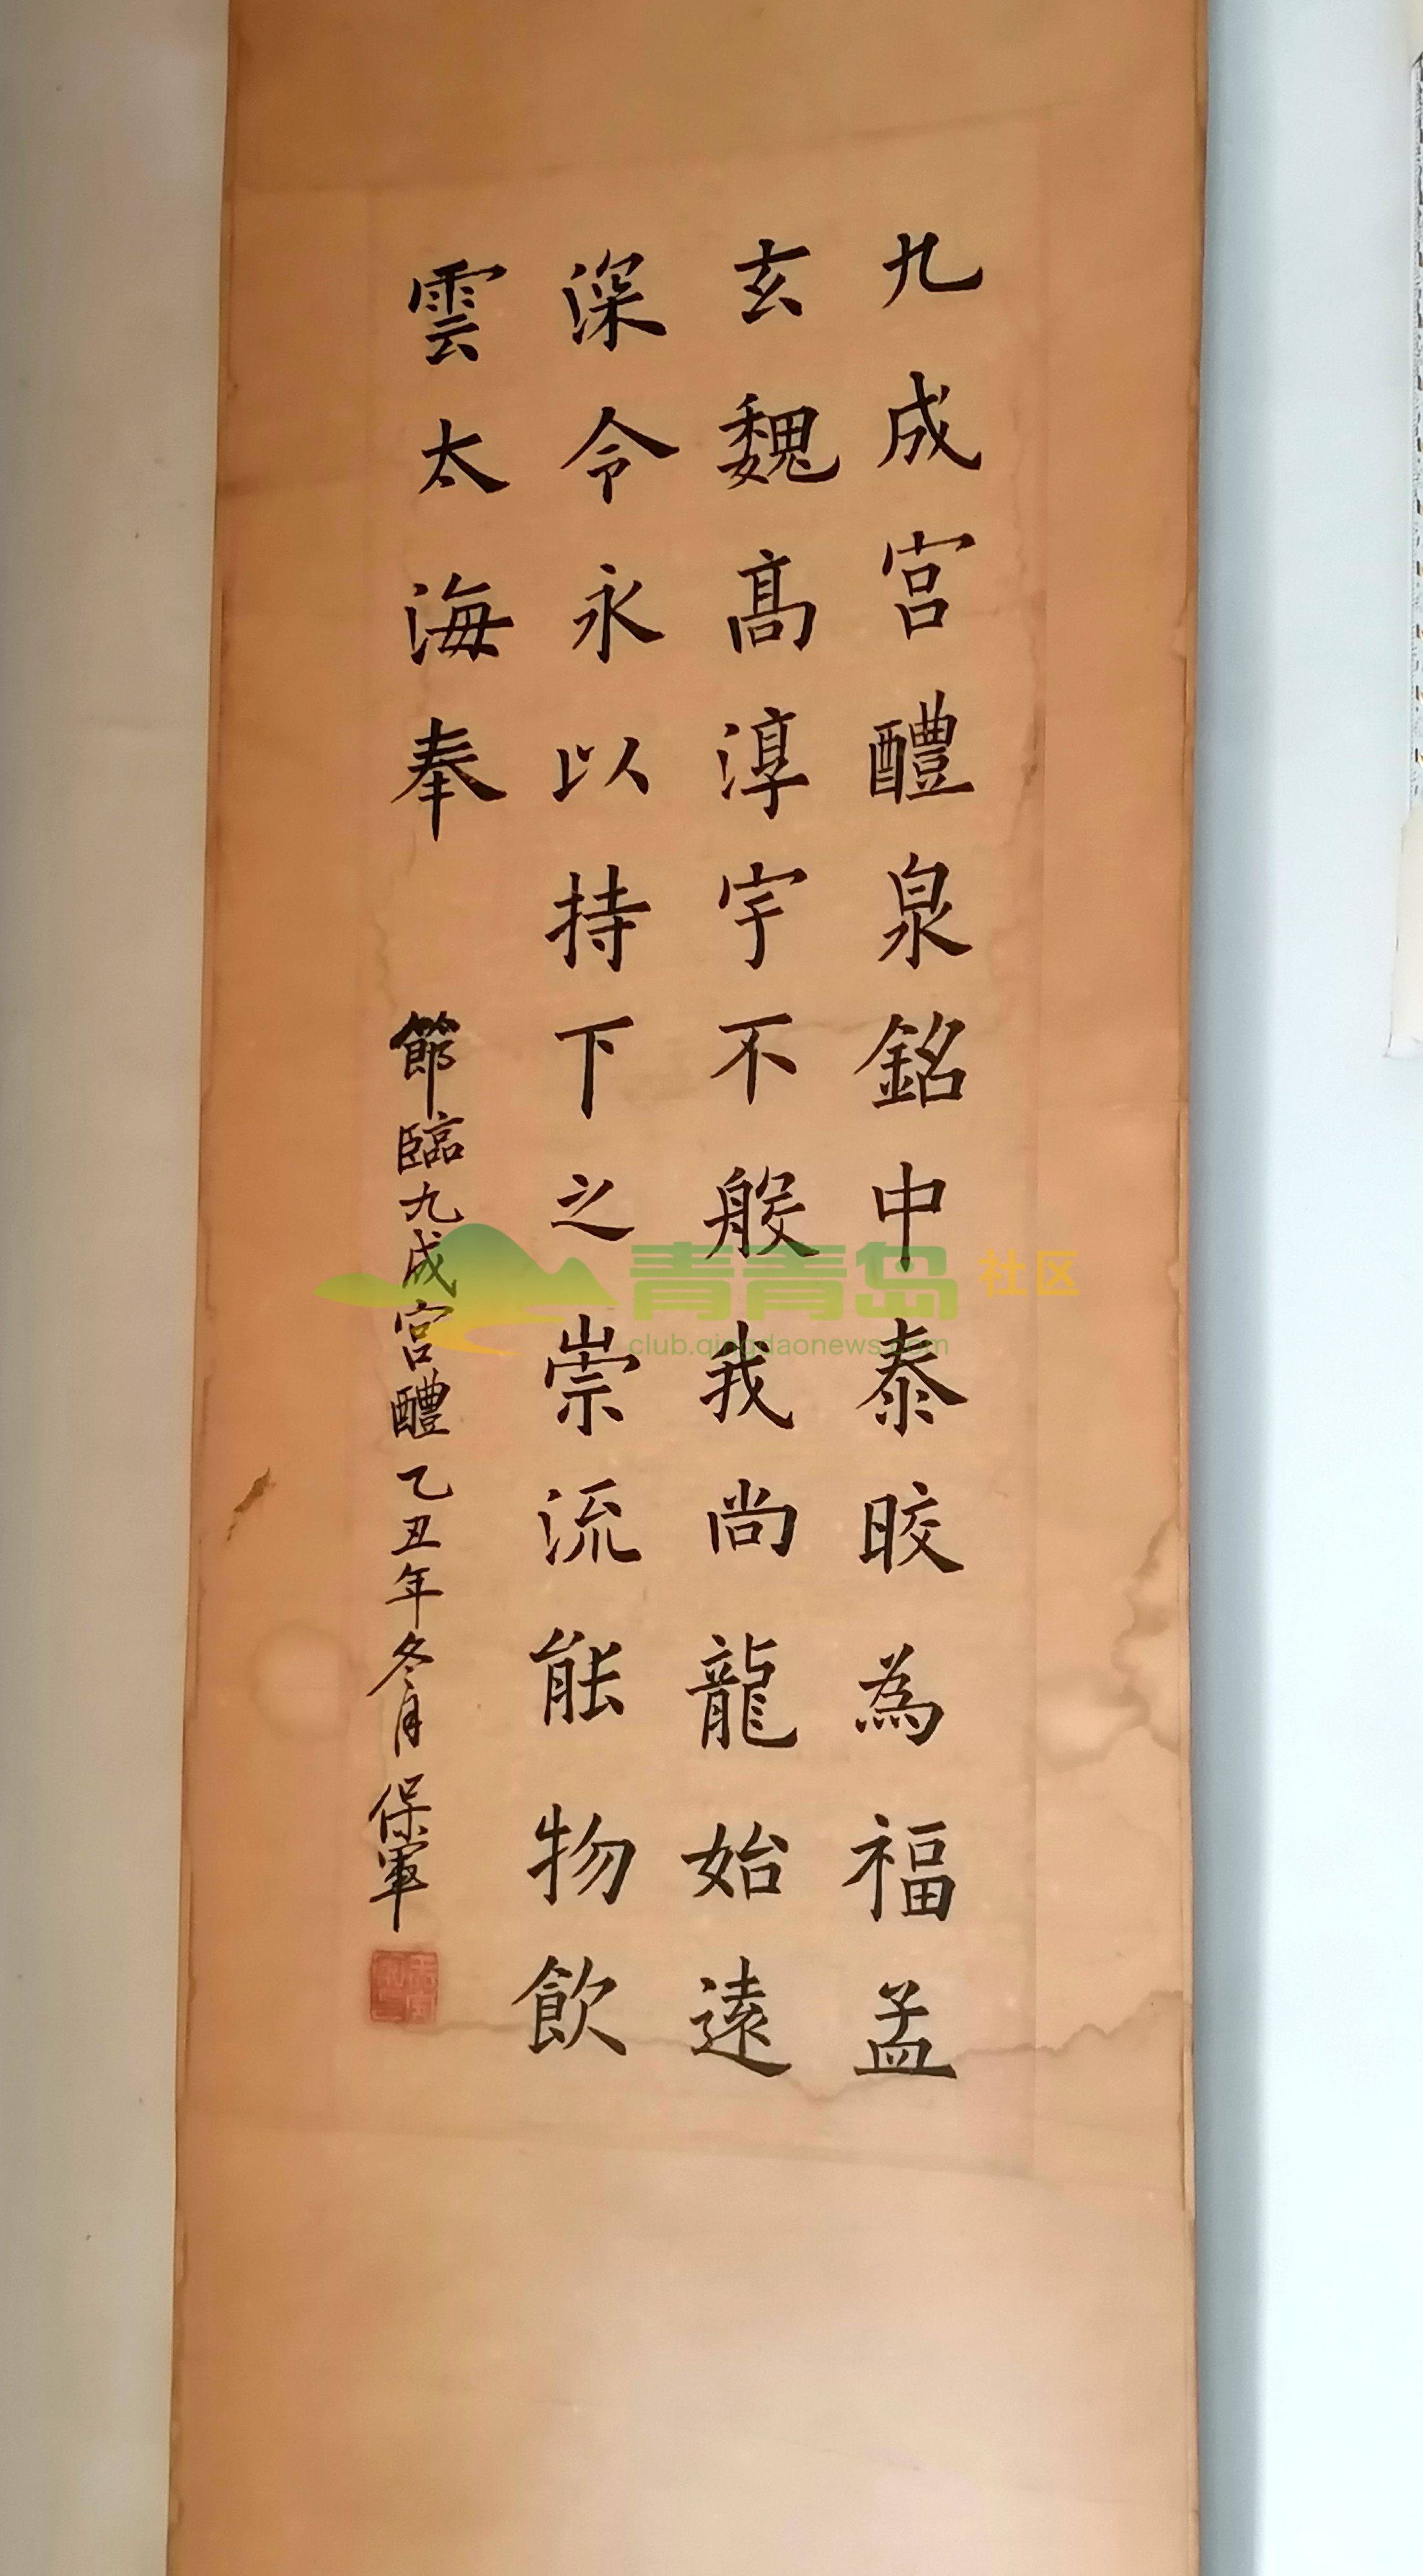 九成宮醴泉銘中泰晈為福孟
玄魏髙淳宇不般我尚龍始遠
深令永以持下之崇流能物飲
雲太海奉
節臨九成宮醴乙丑年冬月保軍
青青岛社区
club.qingdaonews.com